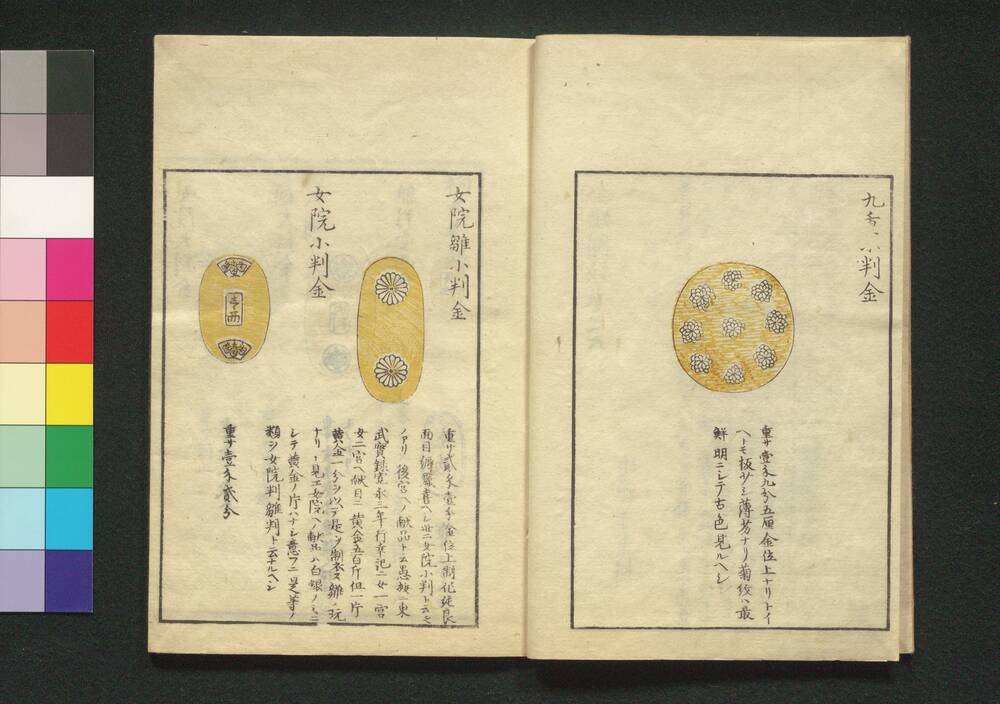 九 小判金
重サ壹匁九分五厘金位上ナリトイ
ヘトモ板少シ薄芳ナリ菊紋ハ最
鮮明ニシテ古色見ルヘシ
女院雛小判金
重サ貳匁壹分金位上制作純良
面目 喜ヘシ世ニ女院小判ト云モ
ノアリ後宮ヘノ献品ト云愚按東
武實録寛永三年行幸記ニ女一宮
女二宮ヘ献目ニ黄金五百斤但一片
黄金一分シ以テ是ヲ制衣ス雛ノ玩
ナリト見エ女院ヘノ献品ハ白銀ノミニ
シテ黄金ノ片ハナシ意フニ是等ノ
類ヲ女院判雛判ト云ナルヘシ
女院小判金
重サ壹匁貳分